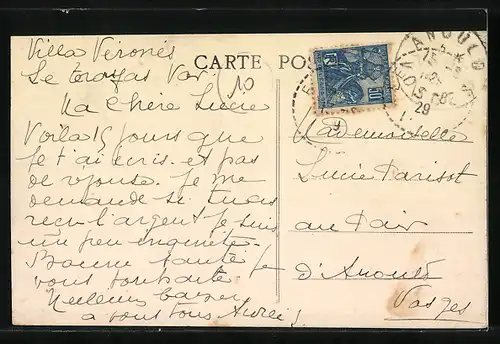 CARTE POS
Villa Véronès
Le Trayas Var
10
Ma Chère Lucie
Voila 15 jours que
Je t'ai écris et pas
de réponse. Je me
demande si tu as
reçu l'argent Je suis
un peu enquiète.
Bonne santé Je
vous souhaite.
Meilleurs baisers
à vous tous
ANOULD
29
Mademoiselle
Lucie Parisot
au Pair
d'Anould
Vosges